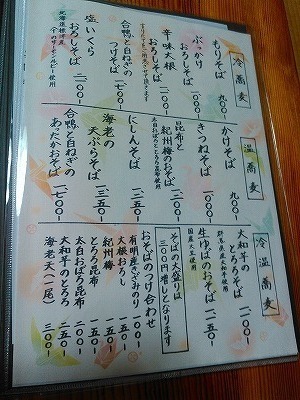 冷蕎麦
もりそば 九〇〇-
ぶっかけ
おろしそば
辛味大根
おろしそば
合鴨と白ねぎの
つけそば 一七〇〇-
塩いくら
おろしそば 二一〇〇-
温蕎麦
かけそば 九〇〇-
きつねそば
昆布と
紀州梅のおそば
にしんそば 一三五〇-
海老の
天ぷらそば
合鴨と白ねぎの
あったかおそば 一七〇〇-
冷温蕎麦
大和芋の
とろろそば
生ゆばのおそば 一二五〇-
国産大豆使用
そばの大盛りは
三〇〇円増しとなります
おそばのつけ合わせ
有明産きざみのり 一〇〇-
大根おろし 一五〇-
紀州梅 一五〇-
とろろ昆布 一五〇-
太白おぼろ昆布 二〇〇-
大和芋のとろろ 二五〇-
海老天(一尾) 三〇〇-